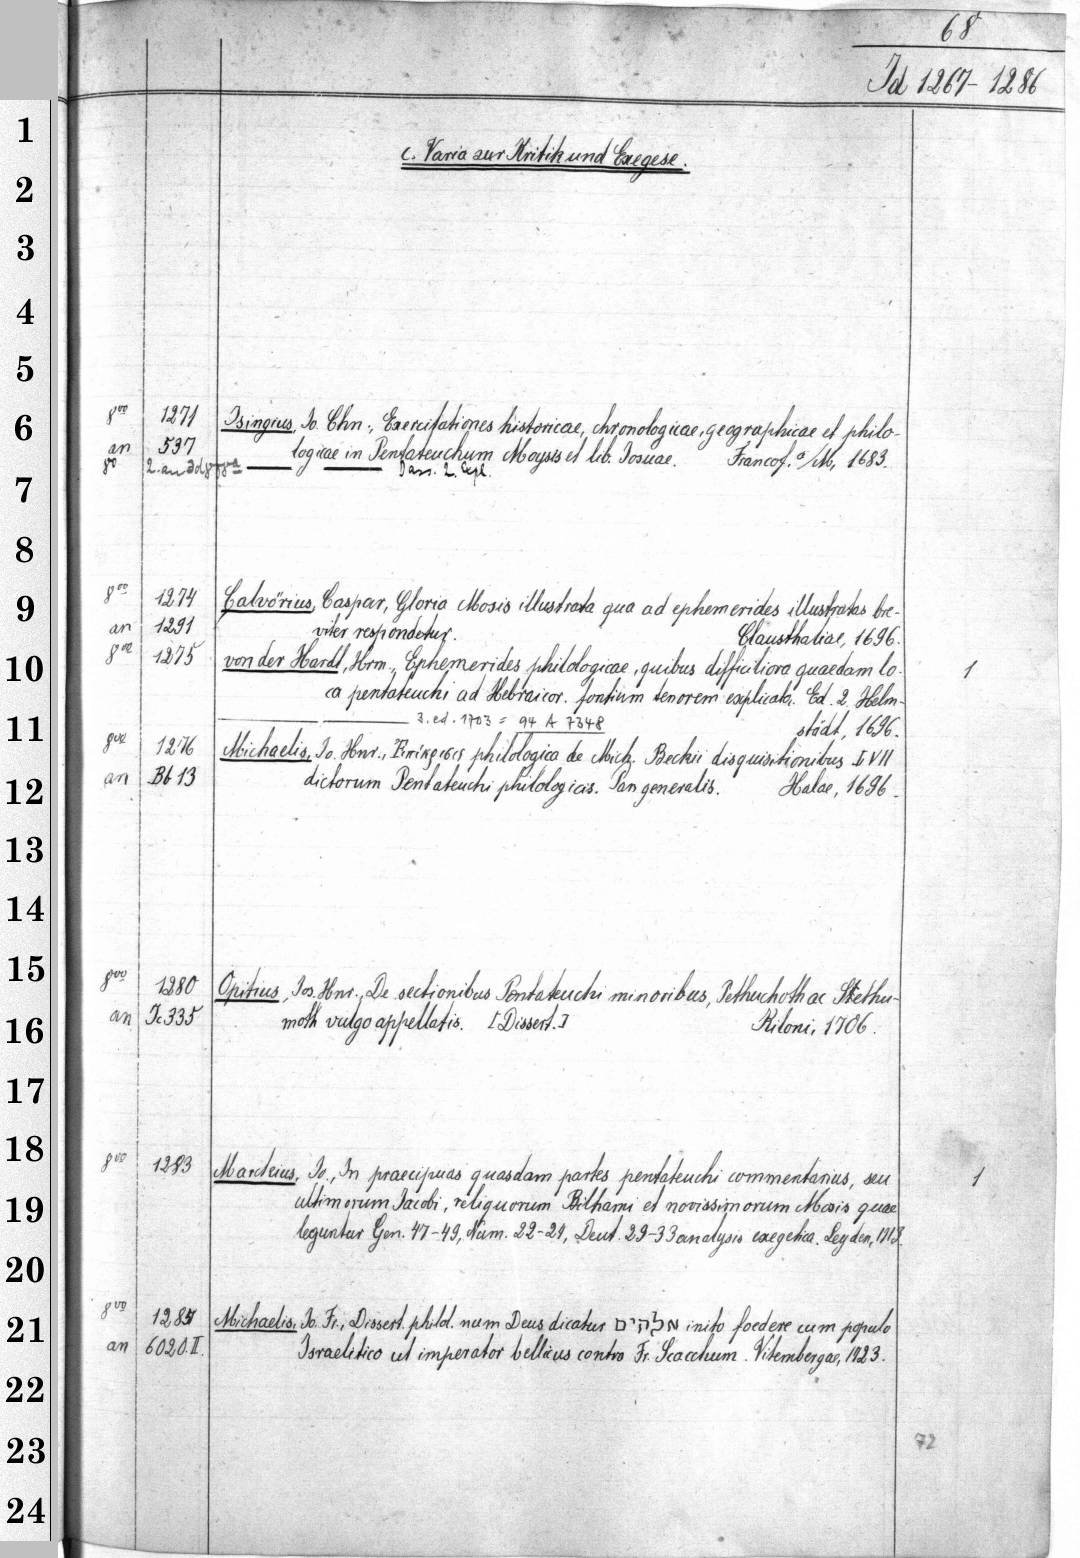 68
Id 1267-1286
c. Varia zur Kritik und Exegese.
8vo 1271 Isingius, Jo. Chn., Exercitationes historicae, chronologicae, geographicae et philo-
an 537 logicae in Pentateuchum Moysis et lib. Josuae. Francof. a/M, 1683.
8o 2. an Dass. 2. Expl.
8vo 1274 Calvörius, Caspar, Gloria Mosis illustrata qua ad ephemerides illustratas bre-
an 1291 viter respondetur. Clausthaliae, 1696.
8vo 1275 von der Hardt, Hrm., Ephemerides philologicae, quibus difficiliora quaedam lo- 1
ca pentateuchi ad Hebraicor. fontium tenorem explicata. Ed. 2. Helm-
3. ed. 1703 = 94 A 7348 städt, 1696.
8vo 1276 Michaelis, Jo. Hnr., Ἐπίκρισις philologica de Mich. Beckii disquisitionibus LVII
an Bt 13 dictorum Pentateuchi philologicis. Pan generalis. Halae, 1696.
8vo 1280 Opitius, Jos. Hnr., De sectionibus Pentateuchi minoribus, Pethuchoth ac Sethu-
an Ic 335 moth vulgo appellatis. [Dissert.] Kiloni, 1706.
8vo 1283 Marckius, Jo., In praecipuas quasdam partes pentateuchi commentarius, seu 1
ultimorum Jacobi, reliquorum Bilhami et novissimorum Mosis quae
leguntur Gen. 47-49, Num. 22-24, Deut. 29-33 analysis exegetica. Leyden, 1713.
8vo 1285 Michaelis, Jo. Fr., Dissert. philol. num Deus dicatur אלהים inito foedere cum populo
an 6020.II. Israelitico ut imperator bellicus contra Fr. Scacchum. Vitembergae, 1723.
72
1
2
3
4
5
6
7
8
9
10
11
12
13
14
15
16
17
18
19
20
21
22
23
24